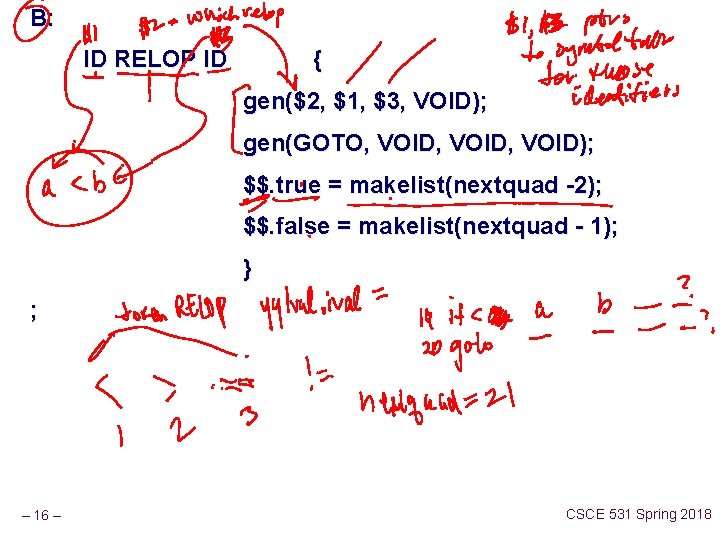 B:
$1 $2 - which relop $3
$1, $3 ptrs
to symbol table
for those
identifiers
ID RELOP ID {
gen($2, $1, $3, VOID);
gen(GOTO, VOID, VOID, VOID);
a < b
$$.true = makelist(nextquad -2);
$$.false = makelist(nextquad - 1);
}
;
token RELOP yylval.ival =
19 if < a b ?
20 goto ?
< > == !=
1 2 3
nextquad = 21
– 16 –
CSCE 531 Spring 2018